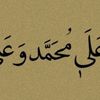 عَلَى مُحَمَّد وَعَلَى